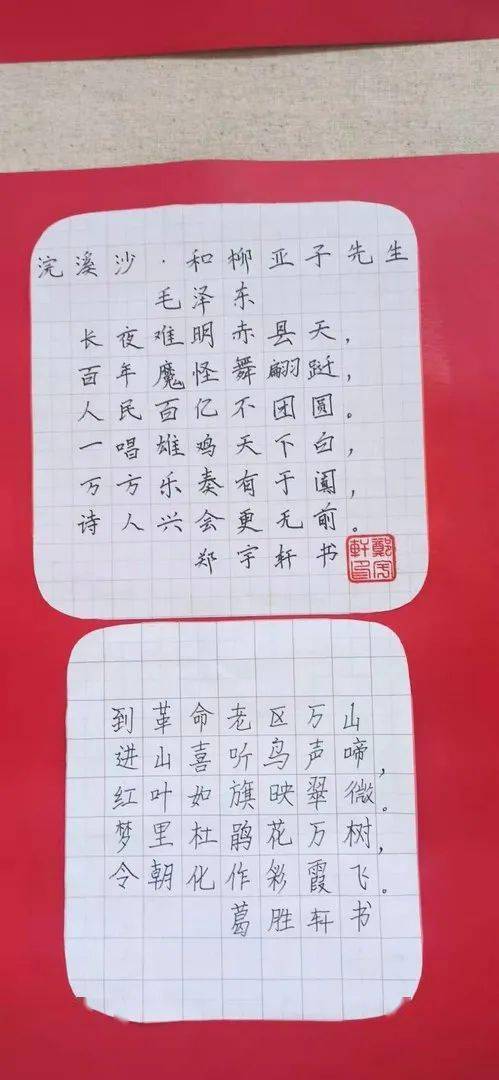 浣溪沙·和柳亚子先生
毛泽东
长夜难明赤县天，
百年魔怪舞翩跹，
人民百亿不团圆。
一唱雄鸡天下白，
万方乐奏有于阗，
诗人兴会更无前。
郑宇轩书
到革命老区万山
进山喜听鸟声啼，
红叶如旗映翠微。
梦里杜鹃花万树，
令朝化作彩霞飞。
葛胜轩书